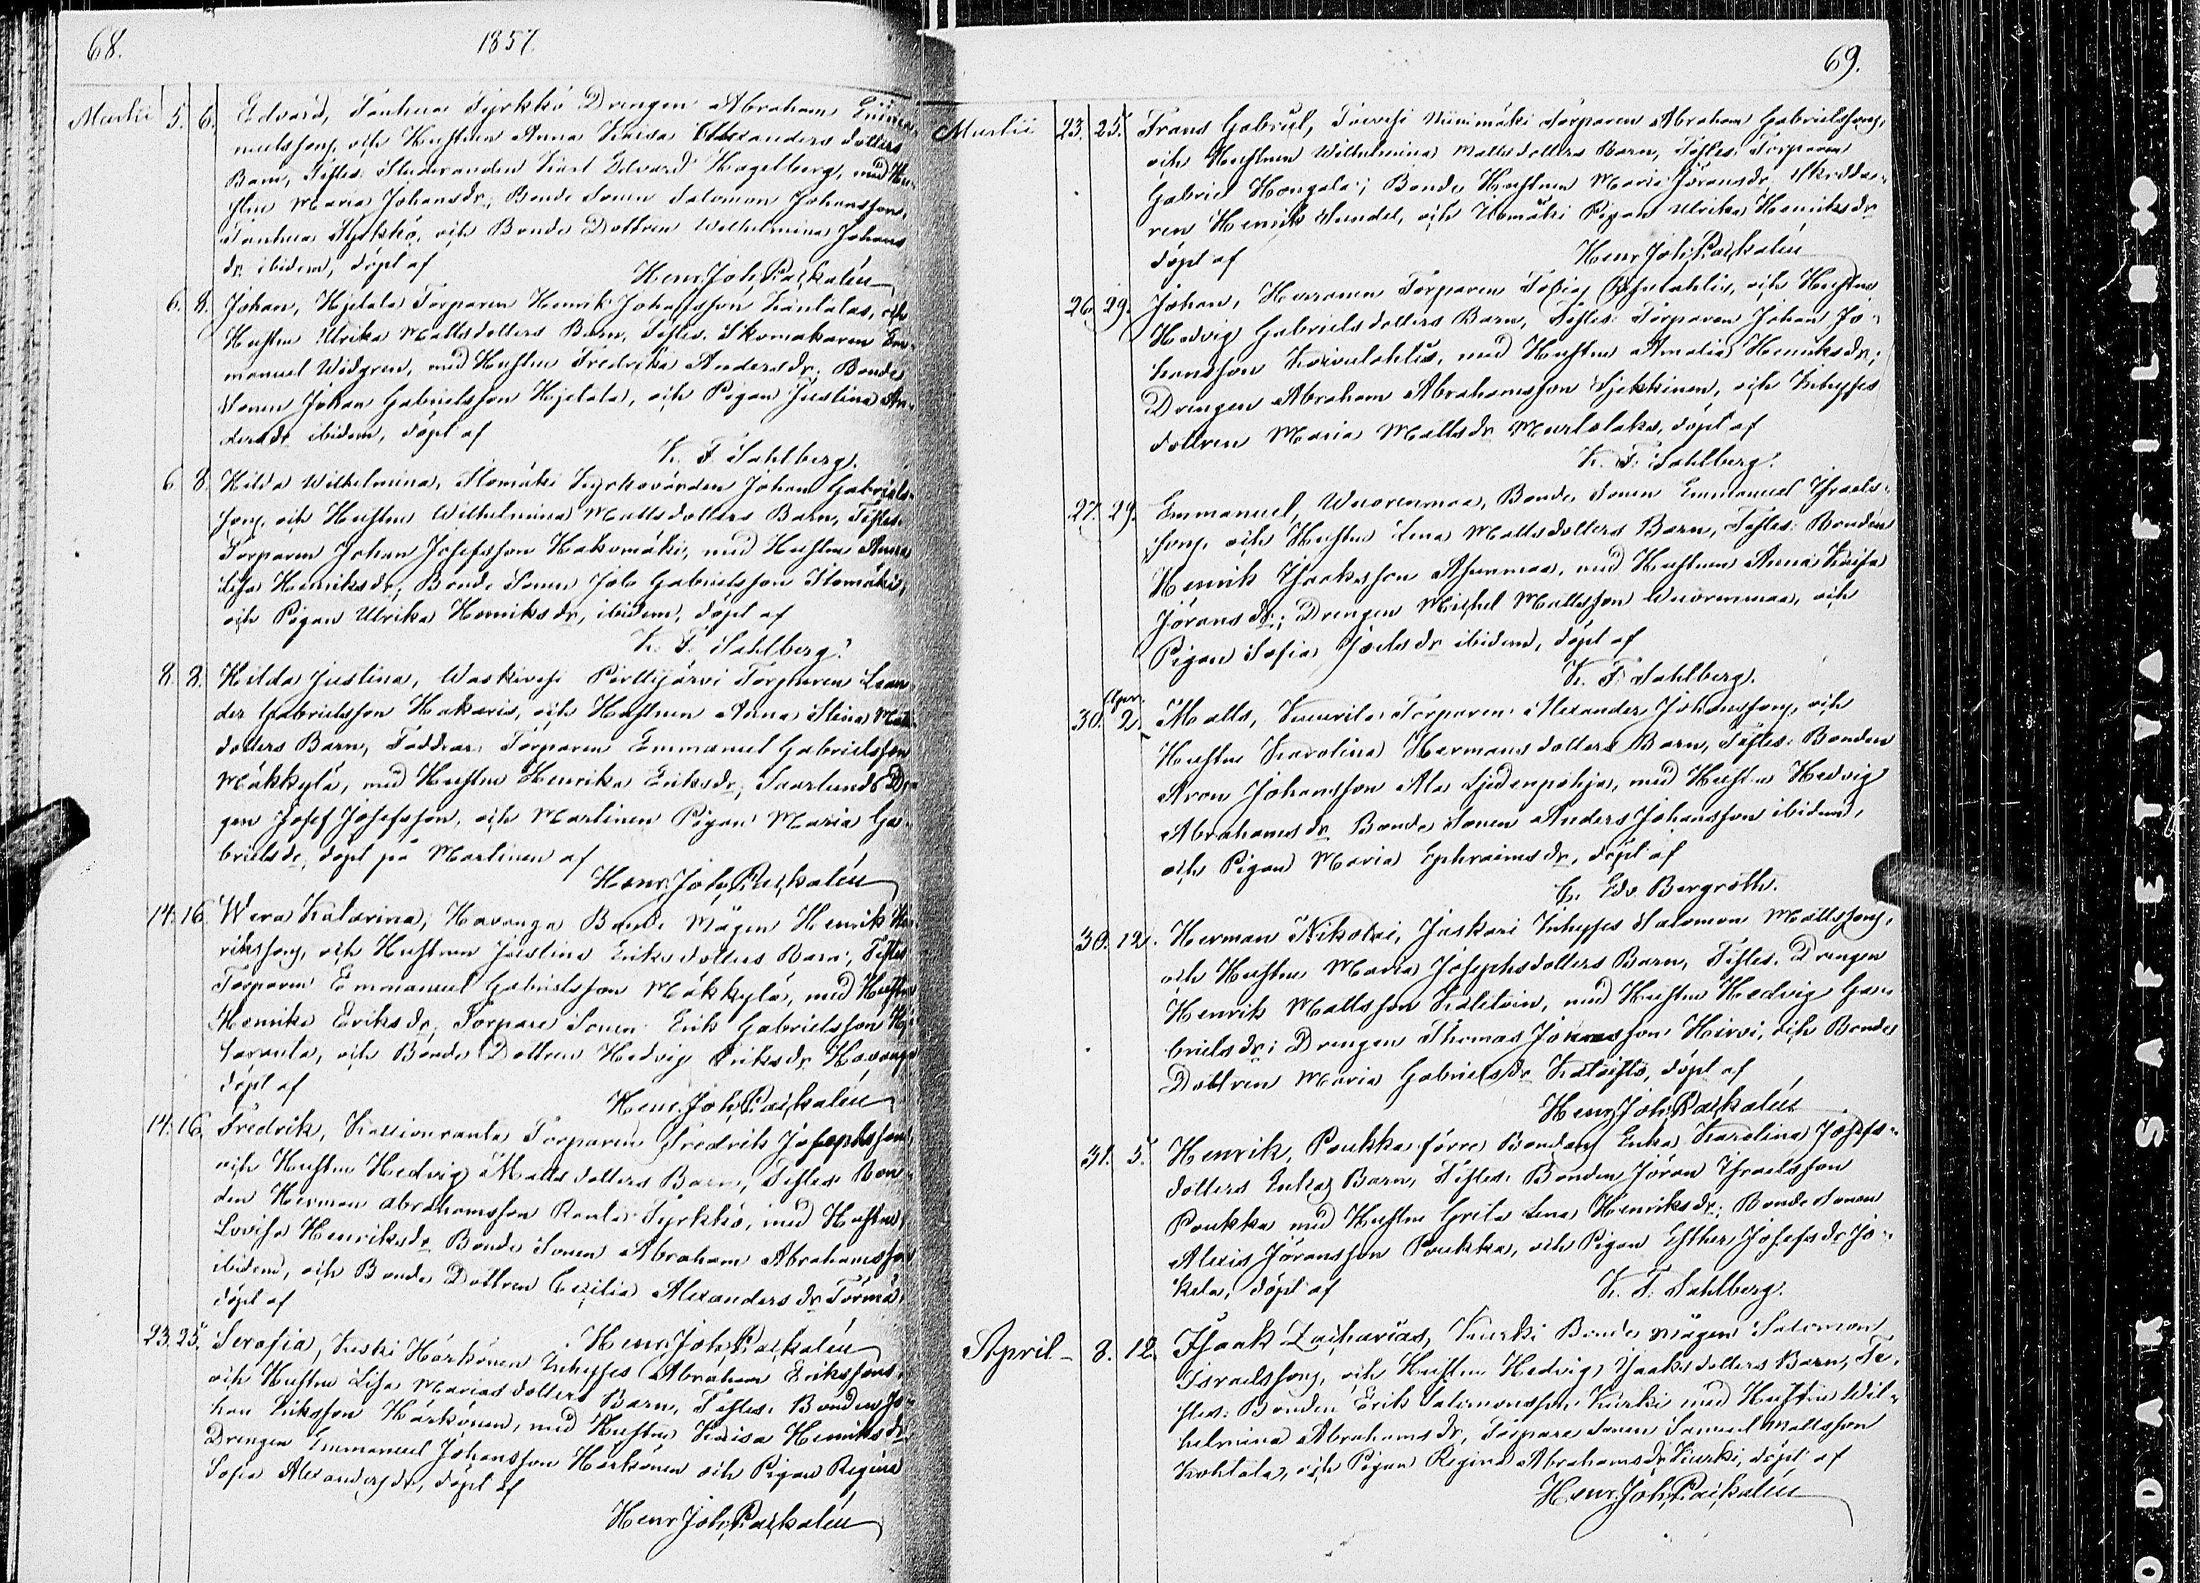 68.
1857.
Martii 5. 6. Edvard, Tanhua Tyrkkö Drengen Abraham Emma-
nuelssons och Hustrun Anna Kaisa Alexandersdotters
Barn, Testes: Studeranden Karl Edvard Hagelberg, med Hu-
strun Maria Johansdr, Bonde Sonen Salomon Johansson,
Tanhua Tyrkkö, och Bonde Dottren Wilhelmina Johans
dr ibidem, döpt af Henr. Joh.
6. 8. Johan, Hjetala Torparen Henrik Johansson och
Hustrun Ulrika Mattsdotters Barn, Testes: Skomakaren Em-
manuel Widgren, med Hustrun Fredrika Andersdr. Bonde
Sonen Johan Gabrielsson Hjetala, och Pigan Justina An-
dersdr ibidem, döpt af
K. F. Sahlberg.
6. 8. Hilda Wilhelmina, Ilomäki Kyrkovärden Johan Gabriels-
sons, och Hustrun Wilhelmina Mattsdotters Barn, Testes:
Torparen Johan Josefsson Hakomäki, med Hustrun Anna
Lisa Henriksdr, Bonde Sonen Job Gabrielsson Ilomäki,
och Pigan Ulrika Henriksdr, ibidem, döpt af
K. F. Sahlberg.
8. 8. Hilda Justina, Waskivesi Pirttijärvi Torparen Lean-
der Gabrielsson och Hustrun Anna Stina Matts
dotters Barn, Faddrar: Torparen Emmanuel Gabrielsson
Mäkkylä, med Hustrun Henrika Eriksdr, Drän-
gen Josef Josefsson, och Martinen Pigan Maria Ga-
brielsdr, döpt på Martinen af
Henr. Joh.
14. 16. Wera Katarina, Havanga Bonde Mågen Henrik Hen-
rikssons, och Hustrun Justina Eriksdotters Barn, Testes
Torparen Emmanuel Gabrielsson Mäkkylä, med Hustrun
Henrika Eriksdr, Torpare Sonen Erik Gabrielsson
och Bonde Dottren Hedvig Eriksdr Havanga
döpt af
Henr. Joh.
14. 16. Fredrik, Torparen Fredrik Josephssons
och Hustrun Hedvig Mattsdotters Barn, Testes: Bon-
den Herman Abrahamsson Ranta Tyrkkö, med Hustrun
Lovisa Henriksdr Bonde Sonen Abraham Abrahamsson
ibidem, och Bonde Dottren Cecilia Alexandersdr Törmä,
döpt af
Henr. Joh.
23. 25. Serafia, Keski Härkönen Inhyses Abraham Erikssons,
och Hustrun Lisa Mariasdotters Barn, Testes: Bonden Jo-
han Eriksson Härkönen, med Hustrun Kaisa Henriksdr
Drengen Emmanuel Johansson Härkönen och Pigan Regina
Sofia Alexandersdr, döpt af
Henr. Joh.
69.
Martii 23. 25. Frans Gabriel, Torvesi Niinimäki Torparen Abraham Gabrielssons,
och Hustrun Wilhelmina Mattsdotters Barn, Testes: Torparen
Gabriel Hongala; Bonde Hustrun Maria Göransdr, Skrädda-
ren Henrik Sundel, och Pigan Ulrika Henriksdr
döpt af Henr. Joh.
26. 29. Johan, Herranen Torparen Tobias och Hustrun
Hedvig Gabrielsdotters Barn, Testes: Torparen Johan Jo-
hansson Koivulahtis, med Hustrun Amalia Henriksdr;
Drengen Abraham Abrahamsson och Inhyses
dottren Maria Mattsdr döpt af
K. F. Sahlberg.
27. 29. Emmanuel, Wuorenmaa, Bonde Sonen Emmanuel Israels-
sons, och Hustrun Lena Mattsdotters Barn, Testes: Bonden
Henrik Isaksson Asunmaa, med Hustrun Anna Kaisa
Göransdr; Drengen Michel Mattsson Wuorenmaa, och
Pigan Sofia Joelsdr ibidem, döpt af
K. F. Sahlberg.
30. Apr. 2. Matts, Torparen Alexander Johanssons, och
Hustrun Karolina Hermansdotters Barn, Testes: Bonden
Aron Johansson Ala med Hustrun Hedvig
Abrahamsdr Bonde Sonen Anders Johansson ibidem,
och Pigan Maria Ephraimsdr, döpt af
C. Edv. Bergroth.
30. 12. Herman Nikolai, Juskari Inhyses Salomon Mattssons,
och Hustrun Maria Josephsdotters Barn, Testes: Drengen
Henrik Mattsson med Hustrun Hedvig Ga-
brielsdr; Drengen Thomas Hirvi, och Bonde
Dottren Maria Gabrielsdr döpt af
Henr. Joh.
31. 5. Henrik, Poukka förre Bondens Enka Karolina Josefs-
dotters Enkas Barn, Testes: Bonden Jöran Israelsson
Poukka med Hustrun Greta Lena Henriksdr; Bonde Sonen
Alexis Jöransson Poukka, och Pigan Esther Josefsdr Jo-
kela, döpt af K. F. Sahlberg.
April 8. 12. Isaak Zacharias, Kurki Bonde Mågen Salomon
Israelssons, och Hustrun Hedvig Isaaksdotters Barn, Te-
stes: Bonden Erik Salomonsson Kurki med Hustrun Wil-
helmina Abrahamsdr, Torpare Sonen Samuel Mattsson
Kohtala, och Pigan Regina Abrahamsdr Kurki, döpt af
Henr. Joh.
SAFETY FILM
KODAK